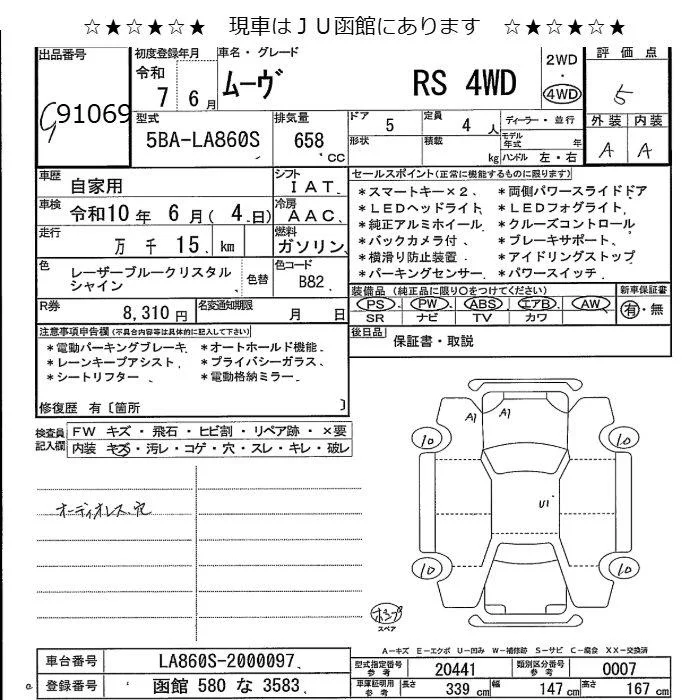 ☆★☆★☆★ 現車はJU函館にあります ☆★☆★☆★
出品番号
91069
初度登録年月
令和
7 6月
車名・グレード
ムーヴ RS 4WD
2WD
・
4WD
評価点
5
外装 内装
A A
型式
5BA-LA860S
排気量
658
cc
ドア 5
定員 4人
ディーラー・並行
形状
積載 kg
モデル年式 年
ハンドル 左・右
車歴
自家用
シフト
IAT
車検
令和10年 6月(4日)
冷房
AAC
走行
万 千 15 km
燃料
ガソリン
色
レーザーブルークリスタルシャイン
色替
色コード
B82
R券
8,310円
名変通知期限
月 日
セールスポイント(正常に機能するものに限ります)
*スマートキー×2、 *両側パワースライドドア
*LEDヘッドライト *LEDフォグライト
*純正アルミホイール *クルーズコントロール
*バックカメラ付 *ブレーキサポート
*横滑り防止装置 *アイドリングストップ
*パーキングセンサー *パワースイッチ
装備品(純正品に限り○をつけてください)
新車保証書
PS PW ABS エアB AW
有・無
SR ナビ TV カワ
後日品
保証書・取説
注意事項申告欄(不具合内容等は具体的に記入して下さい)
*電動パーキングブレーキ *オートホールド機能
*レーンキープアシスト *プライバシーガラス
*シートリフター *電動格納ミラー
修復歴 有〔箇所 〕
検査員記入欄
FW キズ・飛石・ヒビ割・リペア跡・×要
内装 キズ・汚レ・コゲ・穴・スレ・キレ・破レ
オーディオレス穴
A1 A1
10 10
U1
10 10
スペア
A-キズ E-エクボ U-凹み W-補修跡 S-サビ C-腐食 XX-交換済
車台番号
LA860S-2000097
登録番号
函館 580 な 3583
型式指定番号
参考
20441
類別区分番号
参考
0007
車庫証明用
参考
長さ 339 cm
幅 147 cm
高さ 167 cm